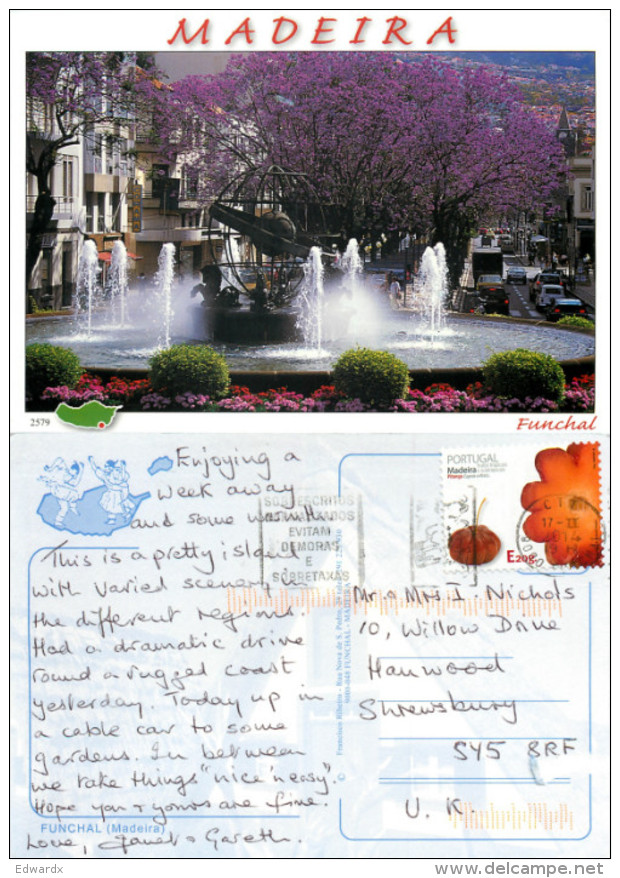 MADEIRA
2579
Funchal
Enjoying a
week away
and some warmth.
This is a pretty island
with varied scenery in
the different regions.
Had a dramatic drive
round a rugged coast
yesterday. Today up in
a cable car to some
gardens. In between
we take things "nice 'n easy".
Hope you + yours are fine.
Love, Janet & Gareth.
FUNCHAL (Madeira)
SOBRESCRITOS
NORMALIZADOS
EVITAM
DEMORAS
E
SOBRETAXAS
Francisco Ribeiro - Rua Nova de S. Pedro,
9000-048 FUNCHAL - MADEIRA
PORTUGAL
Madeira
Pitanga
E20g
17-II
Mr & Mrs I. Nichols
10, Willow Drive
Hanwood
Shrewsbury
SY5 8RF
U.K.
Edwardx
delcampe.net